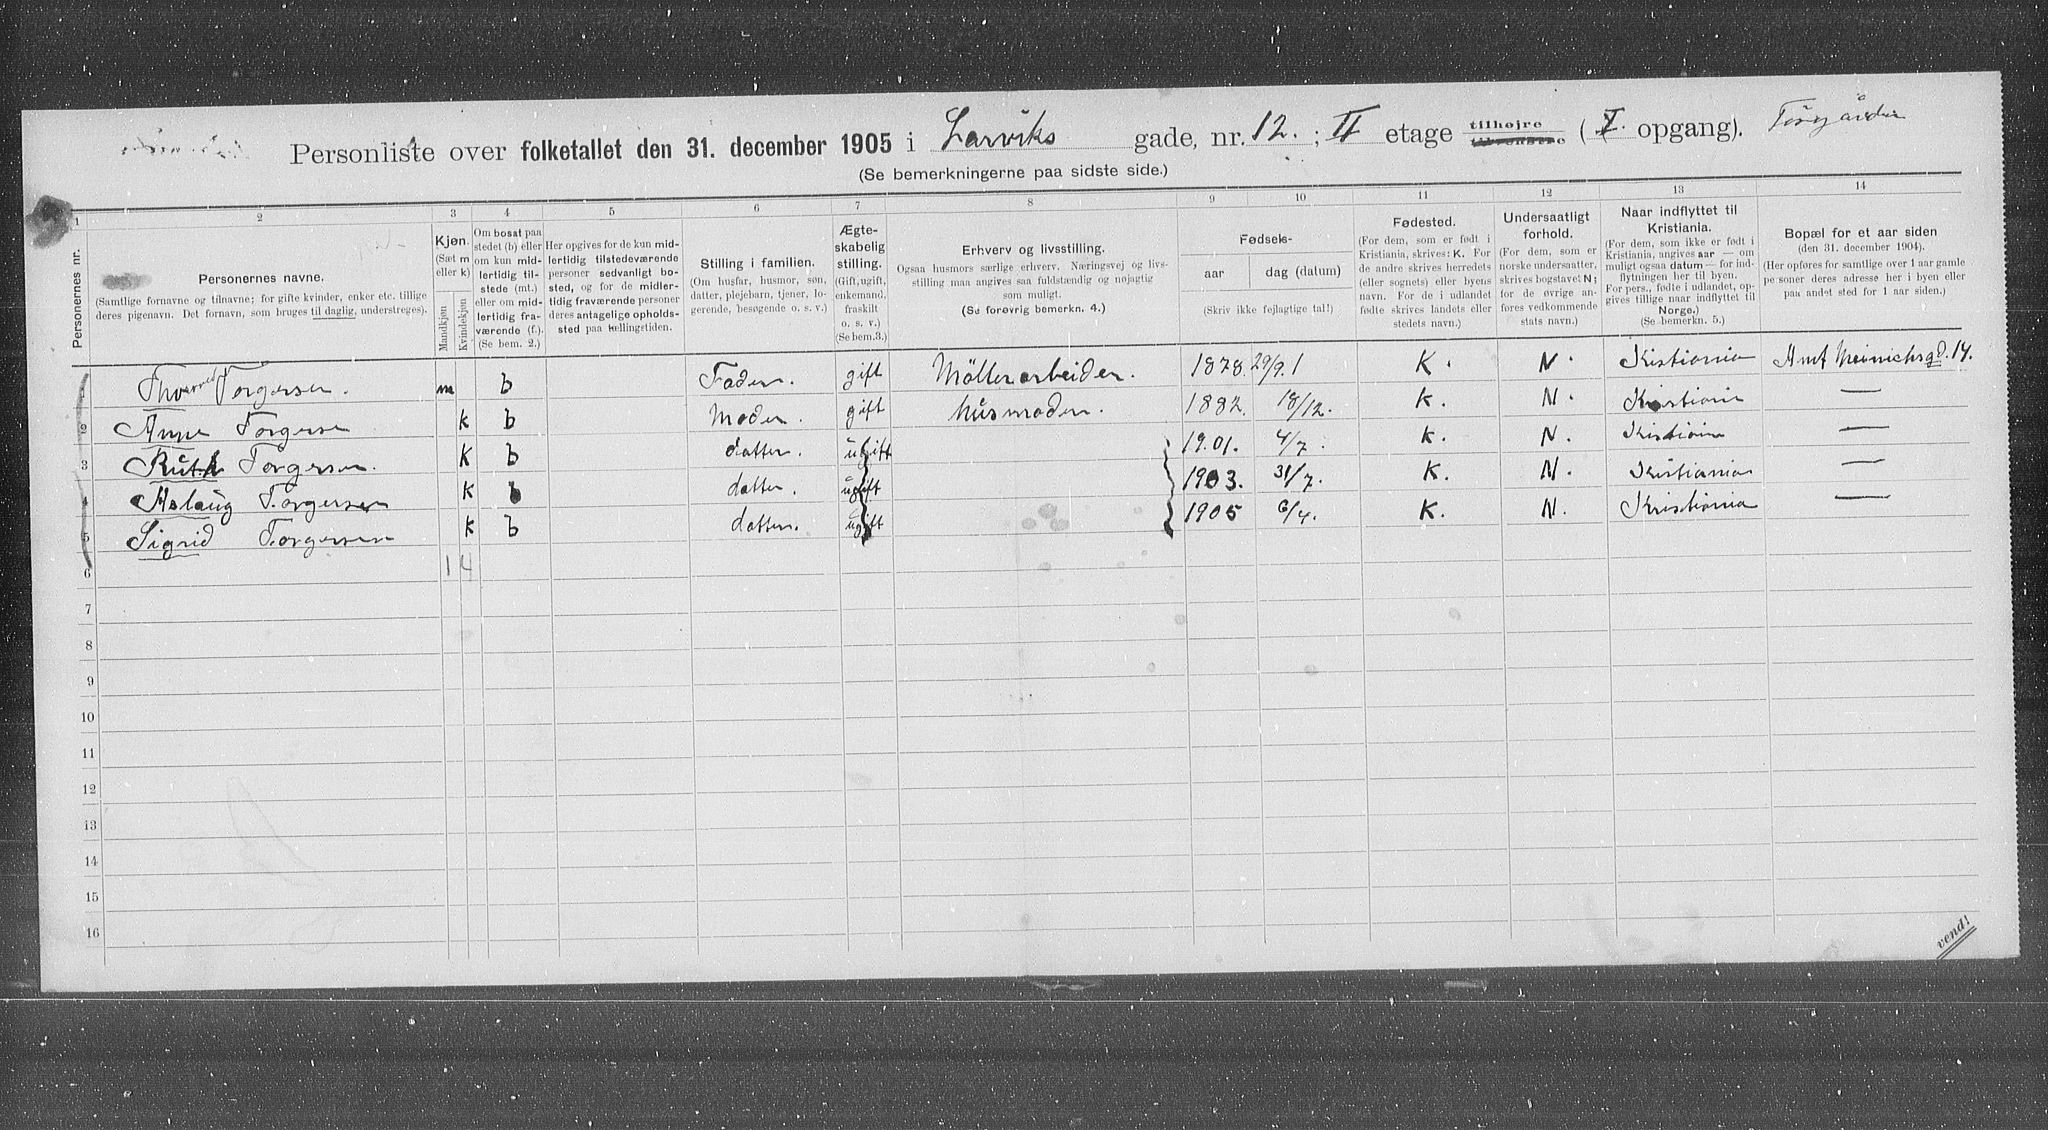 Personliste over folketallet den 31. december 1905 i Larviks gade, nr. 12. ; II etage tilhøjre tilvenstre (I. opgang). Forgården
(Se bemerkningerne paa sidste side.)
1 2 3 4 5 6 7 8 9 10 11 12 13 14
Personernes nr.
Personernes navne.
(Samtlige fornavne og tilnavne; for gifte kvinder, enker etc. tillige
deres pigenavn. Det fornavn, som bruges til daglig, understreges).
Kjøn.
(Sæt m
eller k)
Mandkjøn
Kvindekjøn
Om bosat paa
stedet (b) eller
om kun mid-
lertidig til-
stede (mt.)
eller om mid-
lertidig fra-
værende (f.).
(Se bem. 2.)
Her opgives for de kun mid-
lertidig tilstedeværende
personer sedvanligt bo-
sted, og for de midler-
tidig fraværende personer
deres antagelige opholds-
sted paa tællingstiden.
Stilling i familien.
(Om husfar, husmor, søn,
datter, plejebarn, tjener, lo-
gerende, besøgende o. s. v.)
Ægte-
skabelig
stilling.
(Gift, ugift,
enkemand,
fraskilt
o. s. v.)
(Se bem.3.)
Erhverv og livsstilling.
Ogsaa husmors særlige erhverv. Næringsvej og livs-
stilling maa angives saa fuldstændig og nøjagtig
som muligt.
(Se forøvrig bemerkn. 4.)
Fødsels-
aar dag (datum)
(Skriv ikke fejlagtige tal!)
Fødested.
(For dem, som er født i
Kristiania, skrives: K. For
de andre skrives herredets
(eller sognets) eller byens
navn. For de i udlandet
fødte skrives landets eller
stedets navn.)
Undersaatligt
forhold.
(For dem, som er
norske undersaatter,
skrives bogstavet N;
for de øvrige an-
føres vedkommende
stats navn.)
Naar indflyttet til
Kristiania.
(For dem, som ikke er født i
Kristiania, angives aar — om
muligt ogsaa datum — for ind-
flytningen her til byen.
For pers., fødte i udlandet, op-
gives tillige naar indflyttet til
Norge.)
(Se bemerkn. 5.)
Bopæl for et aar siden
(den 31. december 1904).
(Her opføres for samtlige over 1 aar gamle
personer deres adresse her i byen eller
paa andet sted for 1 aar siden.)
1 Torgersen. m b Fader. gift Möllerarbeider. 1878. 29/9.1 K. N. Kristiania Amt Meinichsgd. 14.
2 Anne Torgersen k b Moder. gift husmoder. 1882. 18/12. K. N. Kristiania —
3 Ruth Torgersen. k b datter. ugift 19.01. 4/7. K. N. Kristiania —
4 Aslaug Torgersen k b datter. ugift 1903. 31/7. K. N. Kristiania —
5 Sigrid Torgersen k b datter. ugift 1905 6/4. K. N. Kristiania —
6 1 4
7
8
9
10
11
12
13
14
15
16
vend!